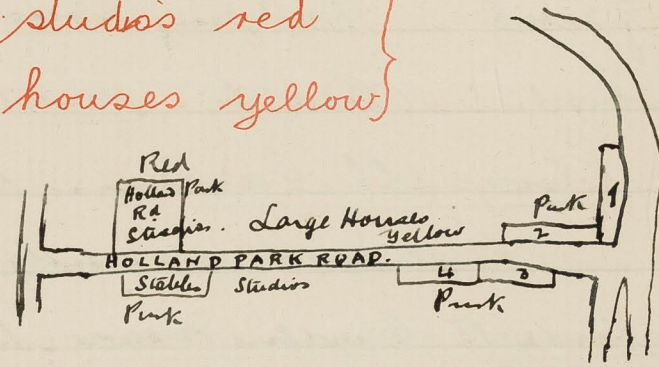 studios red
houses yellow
Red
Holland Park
Rd
Studios.
Large Houses
Yellow
Pink
1
2
HOLLAND PARK ROAD.
Stables
Studios
4
3
Pink
Pink